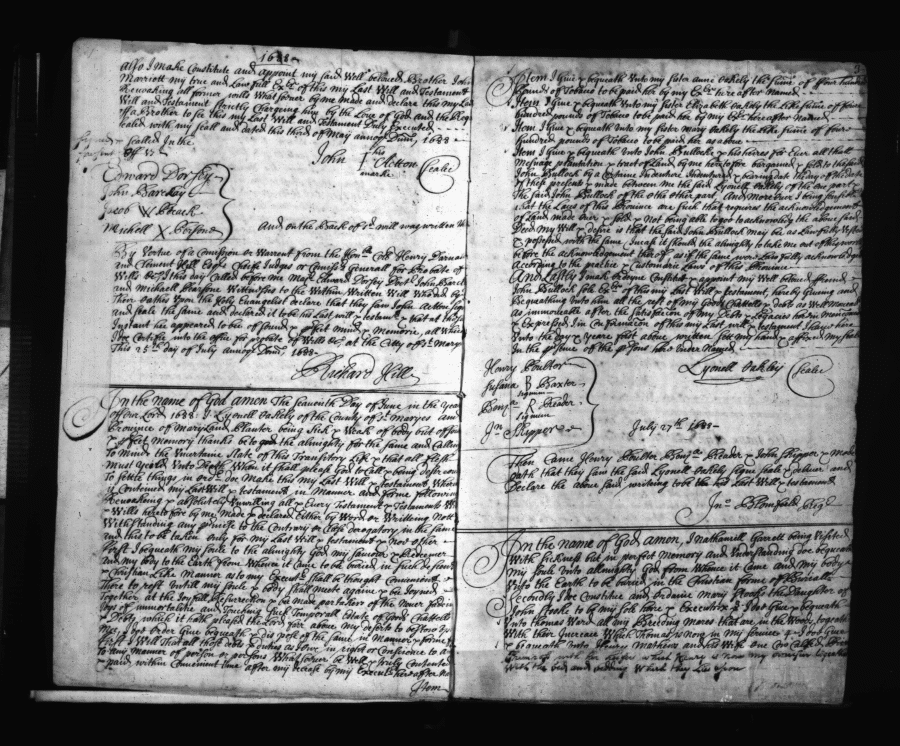 1688
Also I make Constitute and appoint my said Well beloued Brother John
Marriott my true and Lawfull Exec. of this my Last Will and Testament
Reuoaking all former wills Whatsoeuer by me made and declare this my Last
Will and Testament strictly Chargeing him by the Loue of God and the Regard
off a Brother to see this my Last Will and Testament Duly Executed
sealed with my seall and dated this third of May annoq Dom; 1688
sealled In the
John his Oletton Seale
marke
Edward Dorsey
John Barcklay
Jacob W
Michell X Persone
And on the Back of sd. will was written
By Vertue of a Comission or Warrent from the Honble Coll Henry Darnall
and Clement Hill Esqrs Cheife Judges or Comissrs Generall for Probate of
Wills &c this day Called before me Majr Edward Dorsey Doctr John Barcklay
and Michaell Pearsone Wittnesses to the Within Written Will Who did by
Their Oathes Upon the Holy Evangelist declare that they saw John
and seale the same and declared it to be his last will & testamt & that at that
Instant he appeared to be of sound & pfect Mind & Memorie, all Which
I doe Certifie into the office for probate of Wills &c at the Citty of St Marys
This 25th day of July annoq Domi; 1688
Richard Hill
In the name of God amen The seauenth Day of June in the Year
off our Lord 1688: I Lyonell Oakley of the County of St Maryes and
Province of Maryland Planter being Sick & Weak of body but off sound
& pfect memory thanks be to god the almighty for the same and Calling
To Minde the Uncertaine State of this Transitory Life & that all flesh
must yeald Unto Death When it shall please God to Call & being desirous
To settle things in order doe Make this my Last Will & testament Where
Contened my Last Will & testamt in Manner and forme following
Reuoaking & absolutely Annulling all & Euery Testament & Testaments Will
& Wills heretofore by me Made & declared either by Word or Writteing Nott
Withstanding any pmise to the Contrary or Close derogatory in the same
and this to be taken only for my Last Will & testamt & no other
first I bequeath my soule to the almighty God my sauiour & Redeemer
and my body to the Earth from Whence it Came to be buried in such decent
& Christian Like Manner as to my Execut shall be thought Convenient &
There to rest Untill my soule & body shall meete againe & be Joyned
Together at the Joyfull Resurrection & be made pertaker of the Neuer fadeing
Joys of immortalitie and Touching such Temporall Estate of Goods Chattells
& Debts, which it hath pleased the Lord far above my deserts to bestow upon
Me I doe Order Giue bequeath & dispose of the same in Manner & forme
first I Will That all those debts & duties as I owe in right or Conscience to
To any Manner of person or persons What soeuer be Well & truly Contented
& paid within Convenient time after my decease by my Execut hereafter
Item
Item I Giue & bequeath Unto my sister anne Oakely the sume of four hundred
pounds of Tobaco to be paid her by my Exr hereafter Named
Item I Giue & bequeath Unto my sister Elizabeth Oakely the Like sume of four
hundred pounds of Tobaco to be paid her by my Exr hereafter Named
Item I Giue & bequeath Unto my sister Mary Oakely the Like sume of four
hundred pounds of Tobaco to be paid her as aboue
Item I Giue & bequeath Unto John Bullock & his heires for Euer all that
Mesuage plantation & tract of Land by me heretofore bargained & sold to the said
John Bullock by a Certaine Indenture Indentured & bearing date the day of the date
of these presents & made between me the said Lyonell Oakely of the one part &
The said John Bullock of the other part, And moreouer I being sensible
that by the Laws of this Province are such that require the acknowledgement
of Land made Over & sold & Not being able to goe to acknowledge the aboue said
Deed My Will & desire is that the said John Bullock may be as Lawfully Vested
& possessed with the same Incase it should the almighty to take me out of this world
before the acknowledgement thereof as if the same were Lawfully acknowledged
According to the practice & Customary Laws of this Province
And Lastly I make Ordayne Constitute & appoint my Well beloued freind
John Bullock sole Exr of this my Last Will & testament, hereby Giueing and
Bequathing Unto him all the rest of my Goods Chattells & debts as Well Moveable
as immovable after the satisfaction of my Debts & Legacies herein Mentioned
& Expressed In Confirmation of this my Last will & testament I haue here
Unto the day & yeare first aboue written sett my hand & affixed my seale
In the psence off the psons here Under Named
Henry Poulter Lyonell Oakley Seale
Susana B Baxter
signum
Benja R Reader
signum
Jno Skipper
July 27th 1688
Then Came Henry Poulter Benja Reader & John Skipper & made
oath that they saw the said Lyonell Oakely signe seale & deliuer and
Declare the aboue said writeing to be his Last Will & testament
Jno Blomfield Regr
In the name of God amen, I Nathaniell Garrett being Visited
With sicknes but in perfect Memory and Understanding doe bequeath
my soule Unto allmighty God from Whence it Came and my body
Unto the Earth to be buried in the Christian forme of Buriall
Secondly I doe Constitute and Ordaine Mary Stooke the Daughter of
John Stooke to be my sole heire & Executrix & I doe Giue & bequeath
Unto Thomas Ward all my Breeding Mares that are in the Woods together
With their Increase Which Thomas is now in my service & I doe Giue
& bequeath Unto Henry Mathews and his Wife one Cow Called
with the bed and bedding Which they Lie Upon